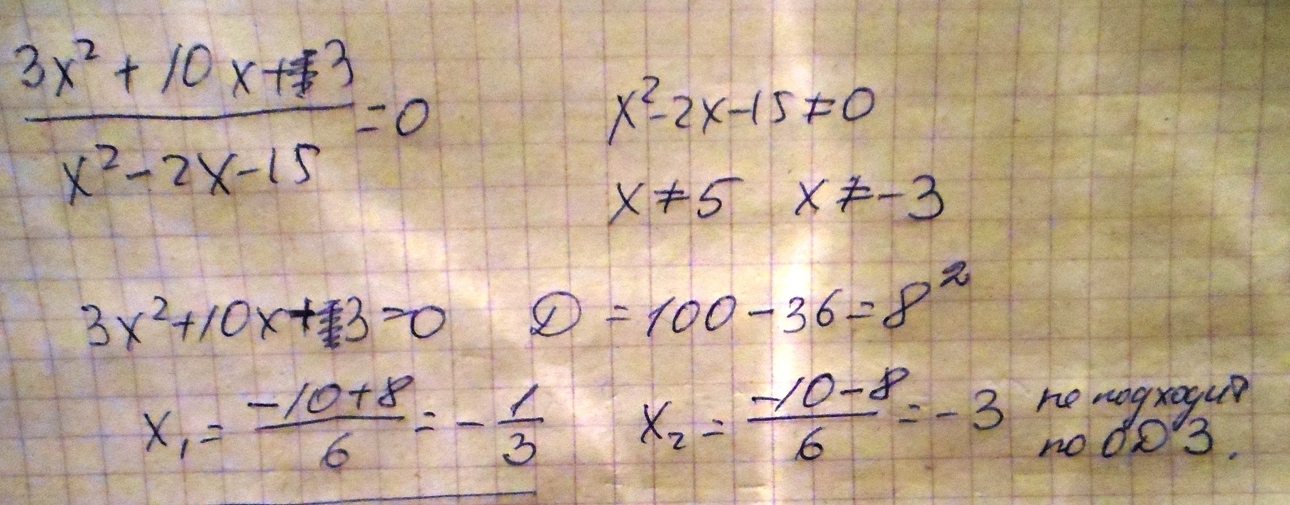 (3x² + 10x + 3)/(x² - 2x - 15) = 0
x² - 2x - 15 ≠ 0
x ≠ 5 x ≠ -3
3x² + 10x + 3 = 0 D = 100 - 36 = 8²
x₁ = (-10+8)/6 = -1/3 x₂ = (-10-8)/6 = -3 не подходит
по ОДЗ.